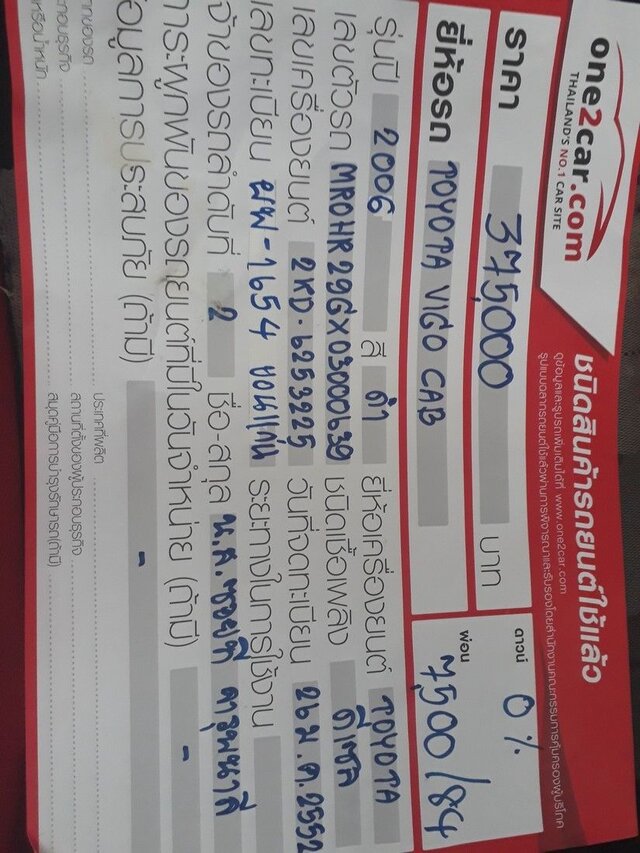 one2car.com
THAILAND'S NO.1 CAR SITE
ชนิดสินค้ารถยนต์ใช้แล้ว
ดูข้อมูลและรูปรถเพิ่มเติมได้ที่ www.one2car.com
รูปแบบฉลากรถยนต์ใช้แล้วผ่านการพิจารณาและรับรองโดยสำนักงานคณะกรรมการคุ้มครองผู้บริโภค
ราคา 375,000 บาท
ดาวน์ 0%
ยี่ห้อรถ TOYOTA VIGO CAB
ผ่อน 7,500/84
รุ่นปี 2006 สี ดำ ยี่ห้อเครื่องยนต์ TOYOTA
เลขตัวรถ MROHR29GX03000639 ชนิดเชื้อเพลิง ดีเซล
เลขเครื่องยนต์ 2KD-6253225 วันที่จดทะเบียน 26 ม.ค. 2552
เลขทะเบียน ผพ-1654 ขอนแก่น ระยะทางในการใช้งาน
จ้าของรถลำดับที่ 2 ชื่อ-สกุล น.ส.
การะผูกพันของรถยนต์ที่มีในวันจำหน่าย (ถ้ามี) -
อมูลการประสบภัย (ถ้ามี) -
ประเทศที่ผลิต
สถานที่ตั้งของผู้ประกอบธุรกิจ
สมุดคู่มือการบำรุงรักษารถ(ถ้ามี)